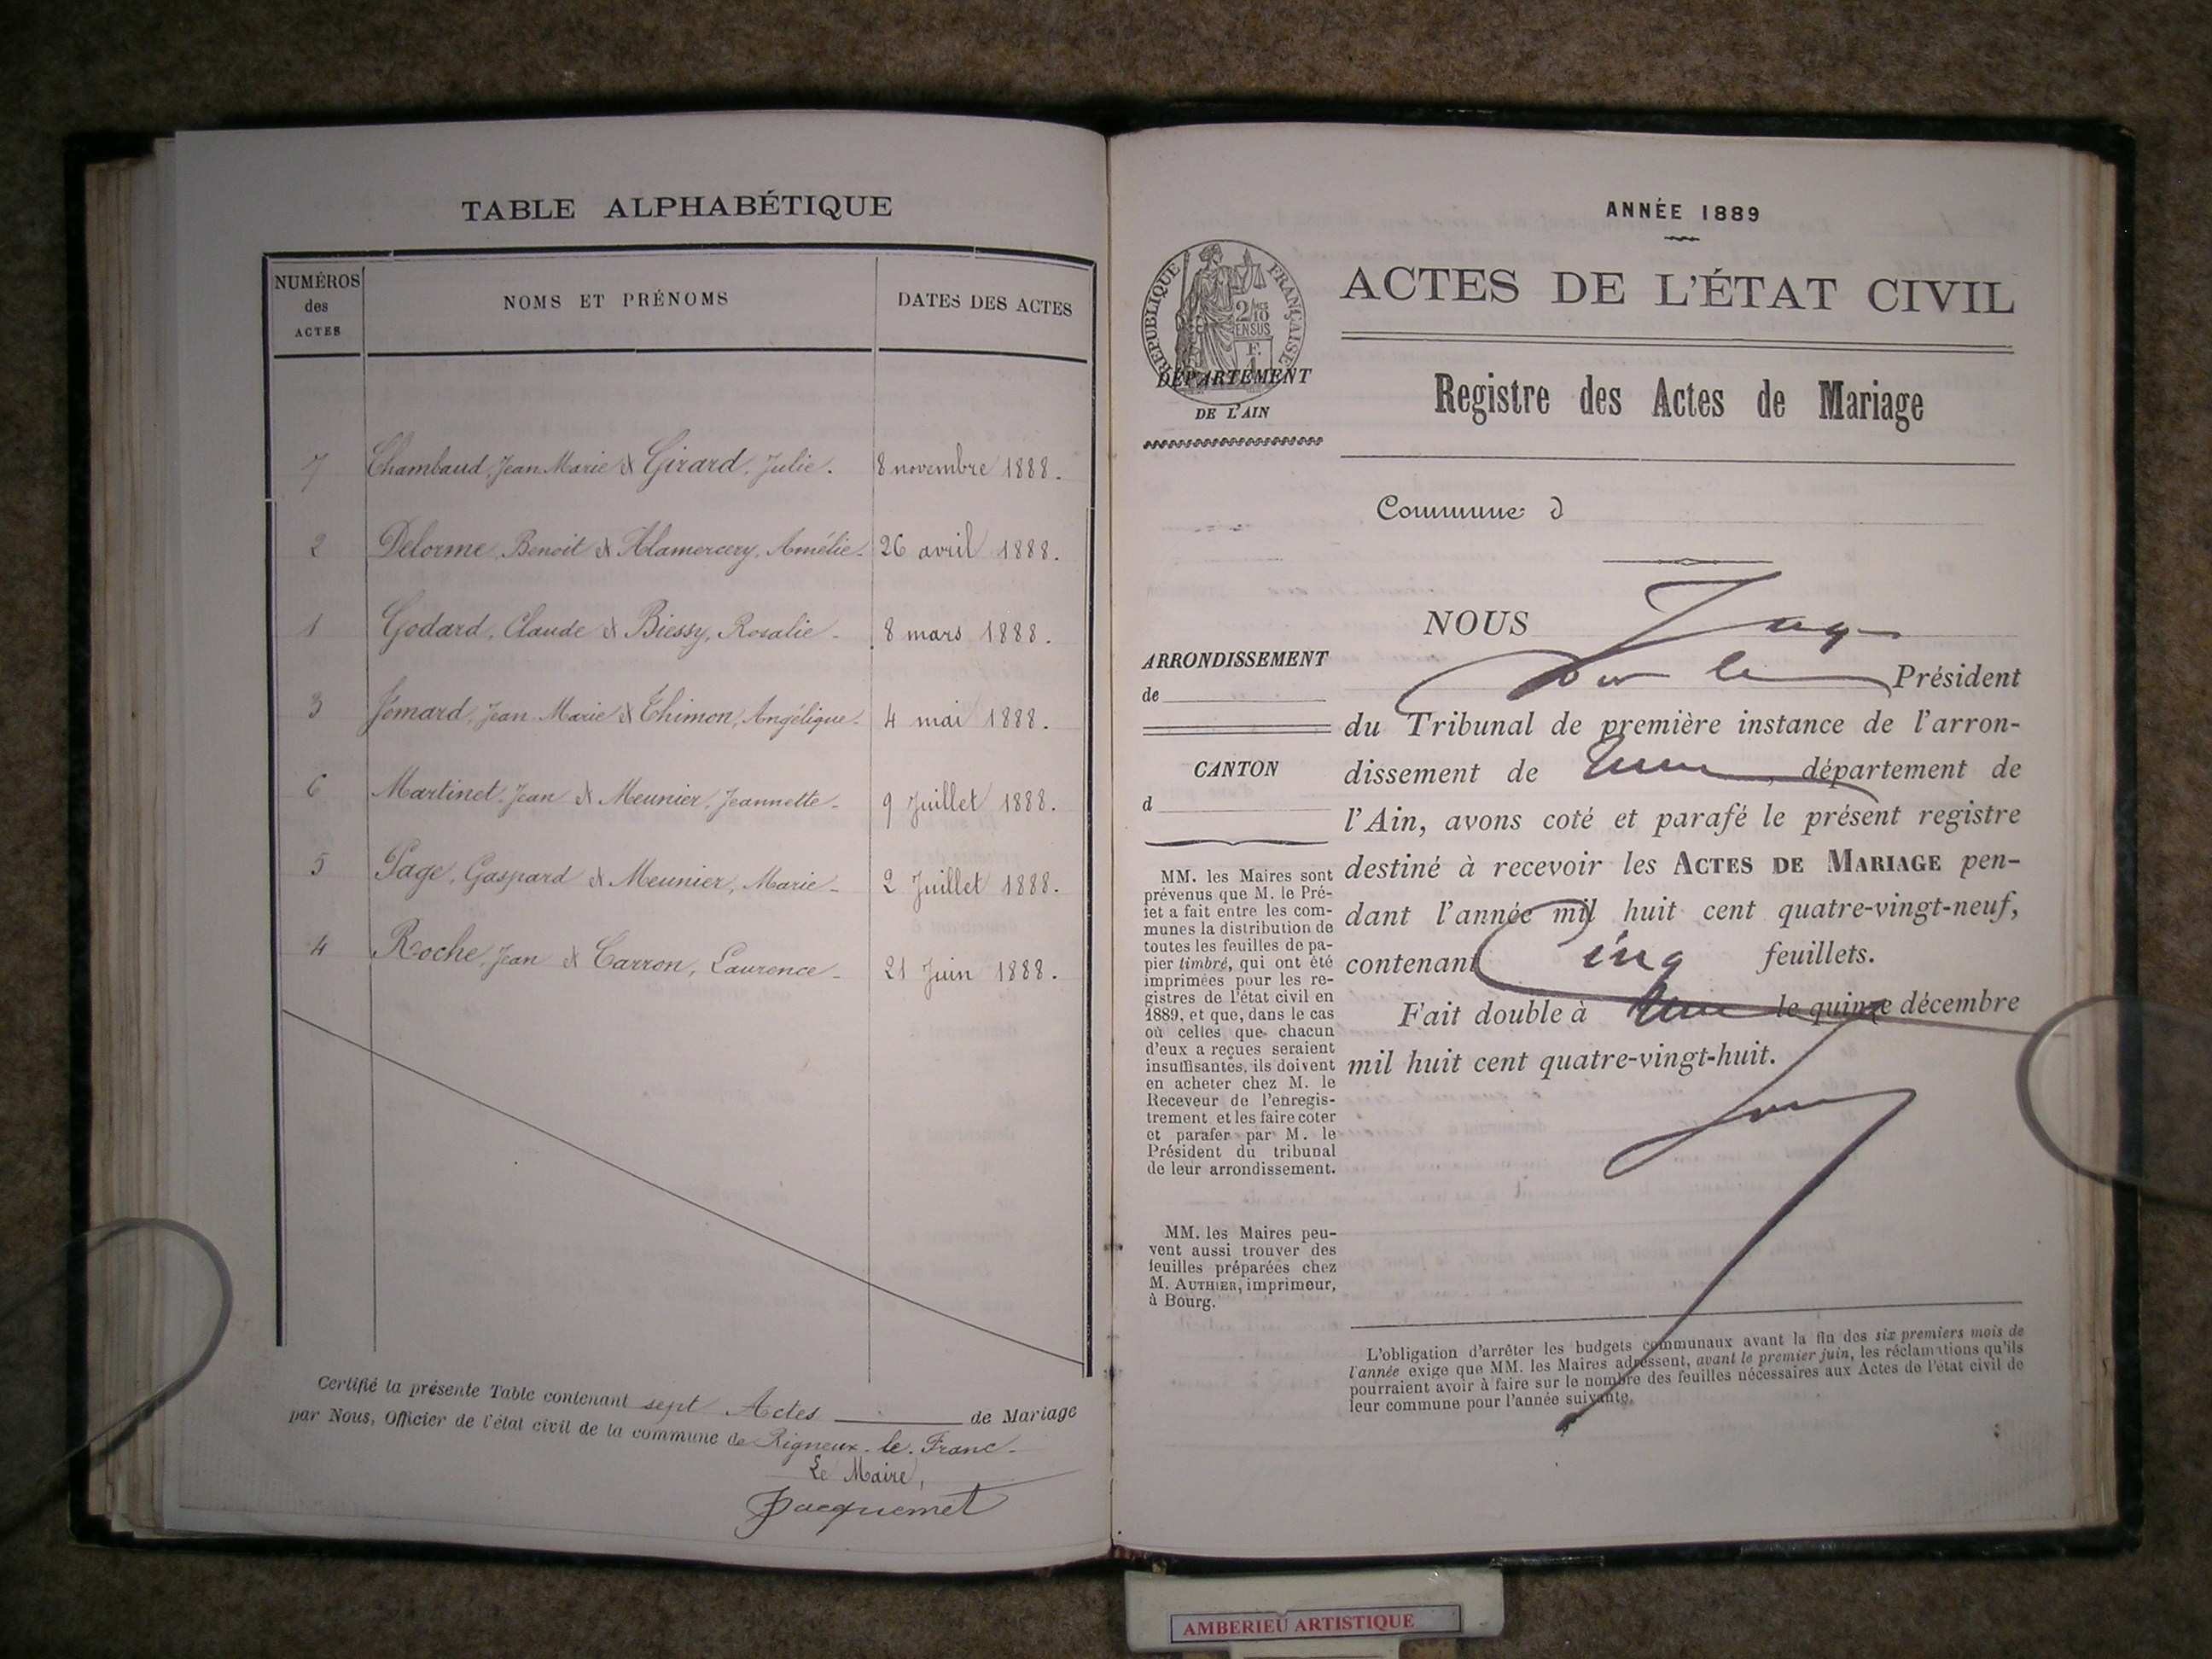 TABLE ALPHABÉTIQUE
NUMÉROS des ACTES
NOMS ET PRÉNOMS
DATES DES ACTES
7 Chambaud, Jean Marie & Girard, Julie. 8 novembre 1888.
2 Delorme, Benoit & Alamercery, Amélie. 26 avril 1888.
1 Godard, Claude & Biessy, Rosalie. 8 mars 1888.
3 Jomard, Jean Marie & Thimon, Angélique. 4 mai 1888.
6 Martinet, Jean & Meunier, Jeannette. 9 Juillet 1888.
5 Page, Gaspard & Meunier, Marie. 2 Juillet 1888.
4 Roche, Jean & Carron, Laurence. 21 Juin 1888.
Certifié la présente Table contenant sept Actes de Mariage
par Nous, Officier de l'état civil de la commune de Rigneux-le-Franc.
Le Maire,
Jacquemet
ANNÉE 1889
ACTES DE L'ÉTAT CIVIL
Registre des Actes de Mariage
Commune d
RÉPUBLIQUE FRANÇAISE
DÉPARTEMENT
DE L'AIN
ARRONDISSEMENT
de
CANTON
d
MM. les Maires sont
prévenus que M. le Pré-
fet a fait entre les com-
munes la distribution de
toutes les feuilles de pa-
pier timbré, qui ont été
imprimées pour les re-
gistres de l'état civil en
1889, et que, dans le cas
où celles que chacun
d'eux a reçues seraient
insuffisantes, ils doivent
en acheter chez M. le
Receveur de l'enregis-
trement et les faire coter
et parafer par M. le
Président du tribunal
de leur arrondissement.
MM. les Maires peu-
vent aussi trouver des
feuilles préparées chez
M. AUTHIER, imprimeur,
à Bourg.
NOUS Juge
pour le Président
du Tribunal de première instance de l'arron-
dissement de , département de
l'Ain, avons coté et parafé le présent registre
destiné à recevoir les ACTES DE MARIAGE pen-
dant l'année mil huit cent quatre-vingt-neuf,
contenant Cinq feuillets.
Fait double à le quinze décembre
mil huit cent quatre-vingt-huit.
L'obligation d'arrêter les budgets communaux avant la fin des six premiers mois de
l'année exige que MM. les Maires adressent, avant le premier juin, les réclamations qu'ils
pourraient avoir à faire sur le nombre des feuilles nécessaires aux Actes de l'état civil de
leur commune pour l'année suivante.
AMBERIEU ARTISTIQUE